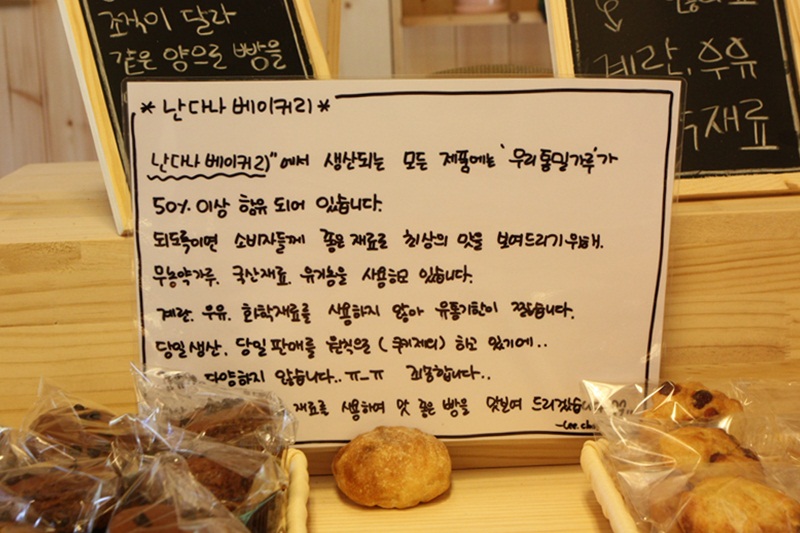 조직이 달라
같은 양으로 빵을
계란, 우유
재료
* 난다나 베이커리 *
난다나 베이커리"에서 생산되는 모든 제품에는 '우리통밀가루'가
50% 이상 함유 되어 있습니다.
되도록이면 소비자들께 좋은 재료로 최상의 맛을 보여드리기 위해.
무농약가루. 국산재료. 유기농을 사용하고 있습니다.
계란. 우유. 화학재료를 사용하지 않아 유통기한이 짧습니다.
당일생산. 당일판매를 원칙으로 (쿠키제외) 하고 있기에..
다양하지 않습니다..ㅠ_ㅠ 죄송합니다..
재료를 사용하여 맛 좋은 빵을 맛보여 드리겠습니다